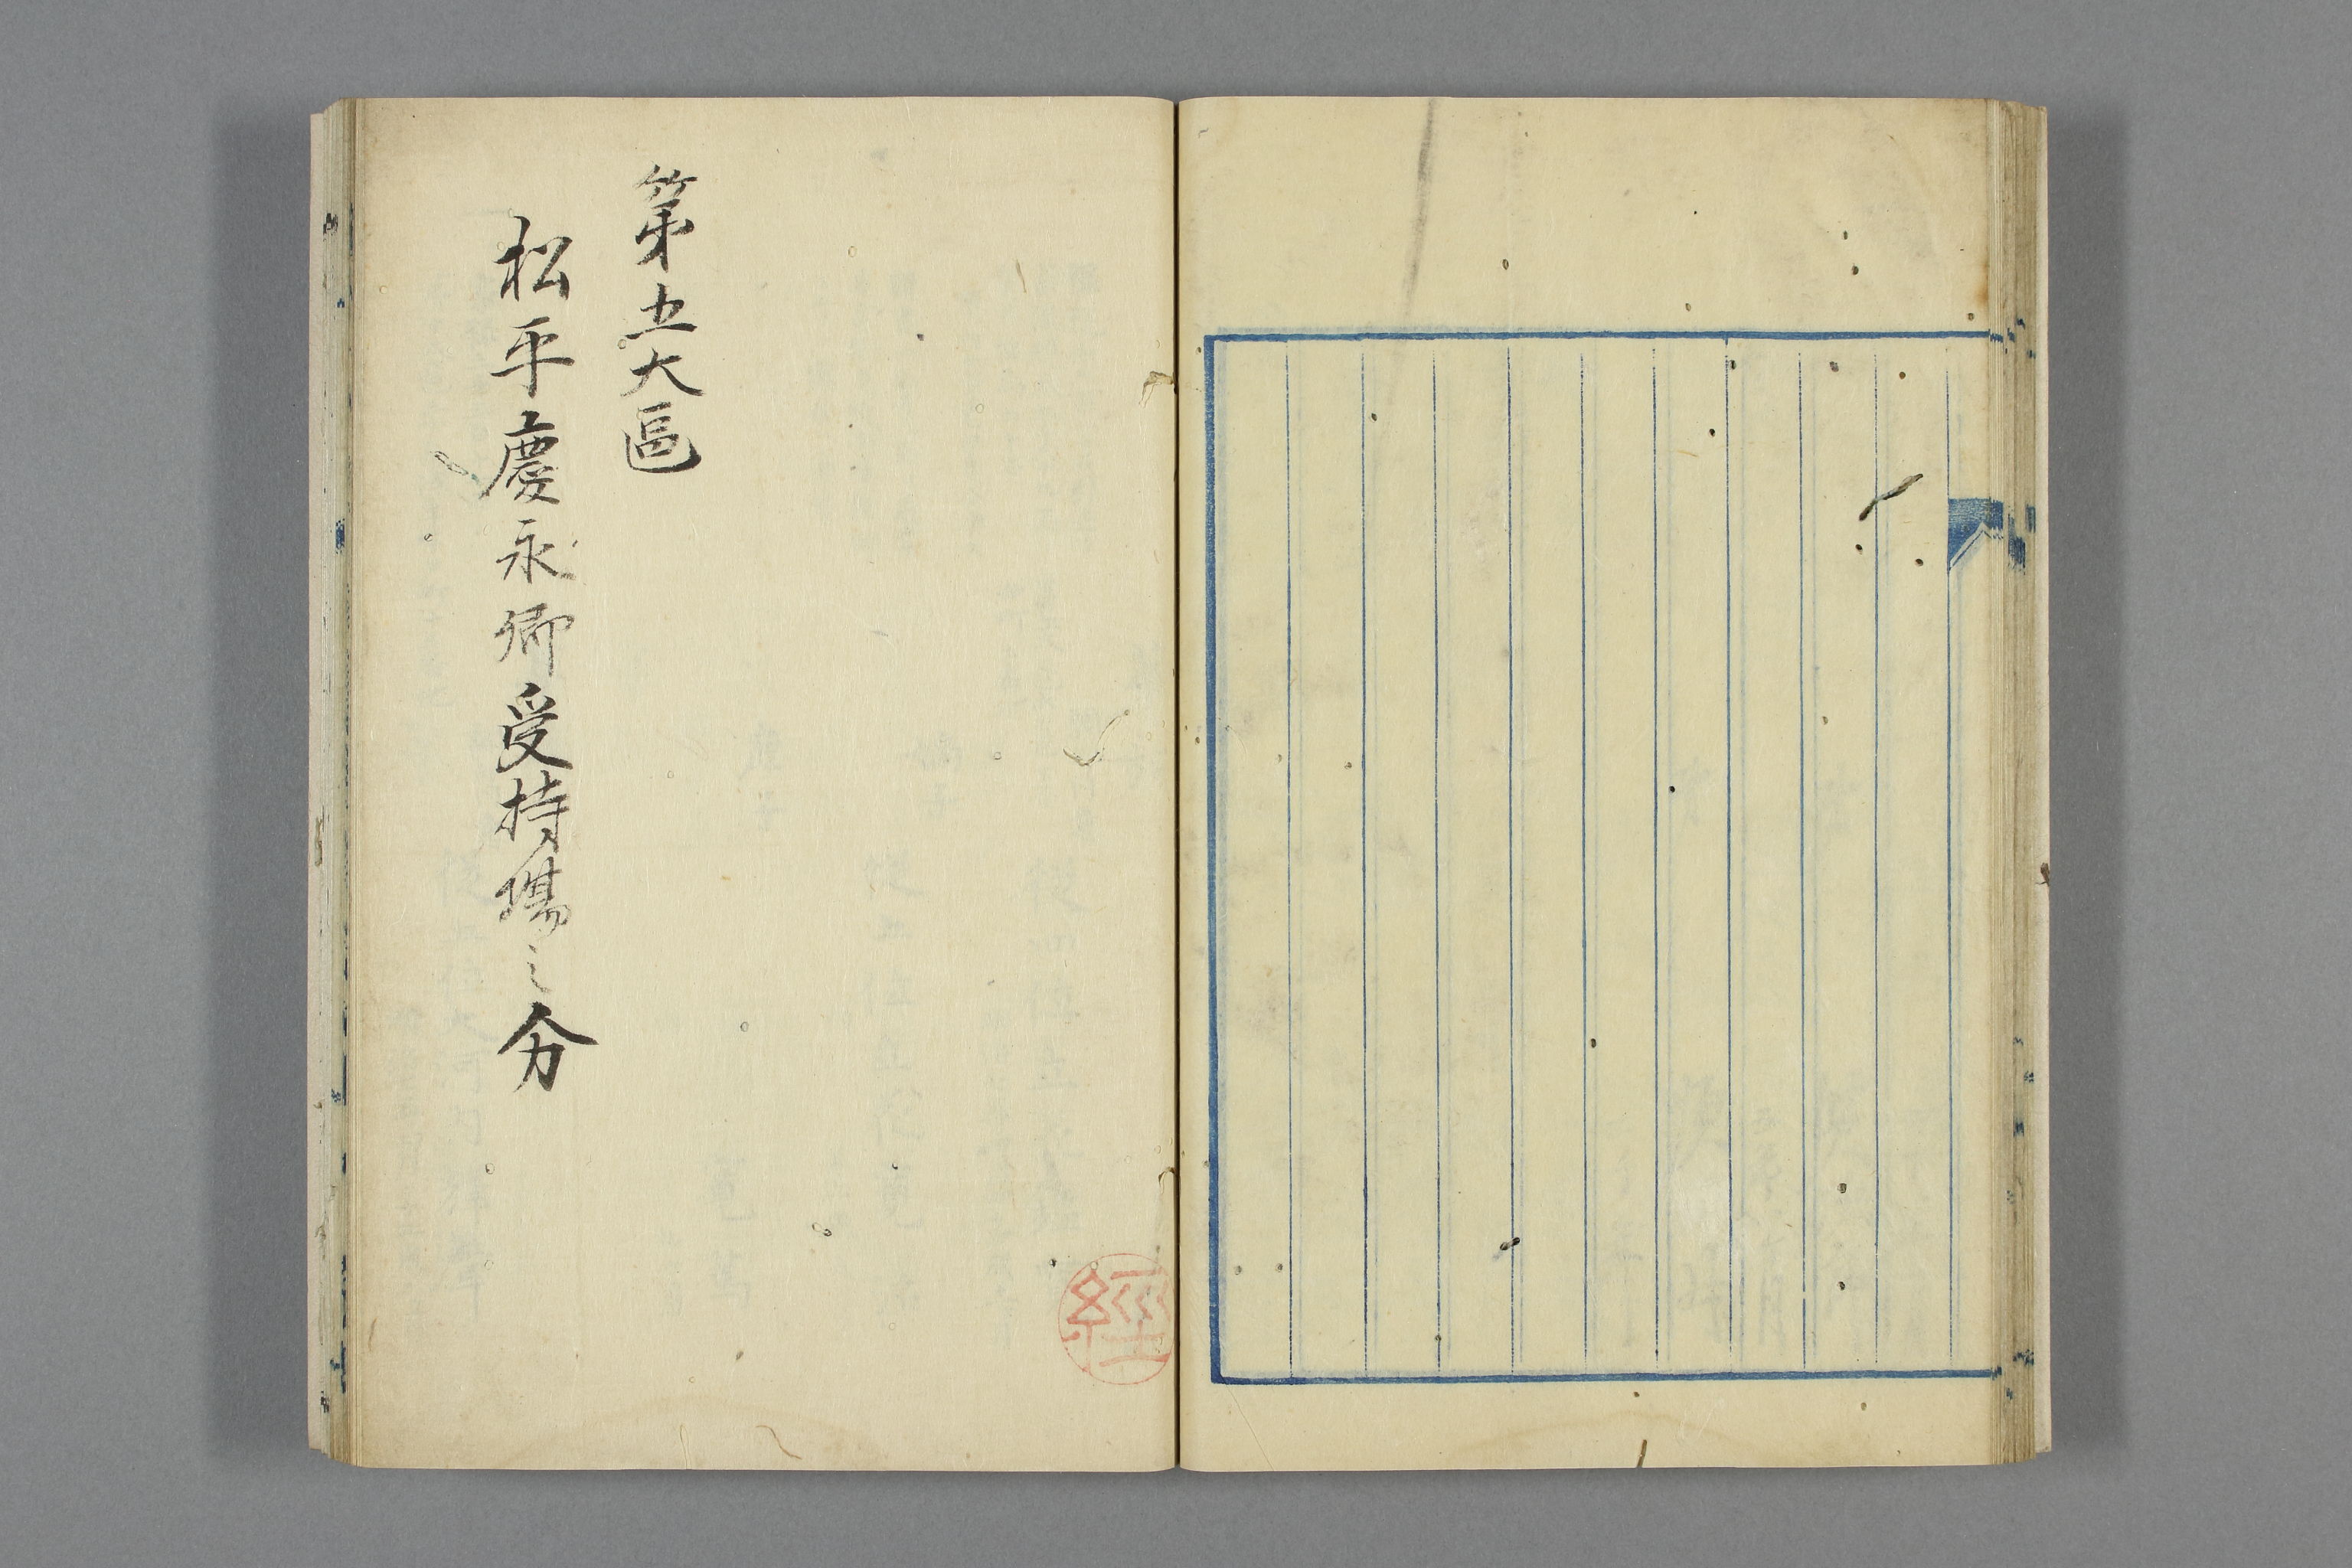 第五大區
松平慶永卿受持場之分
經